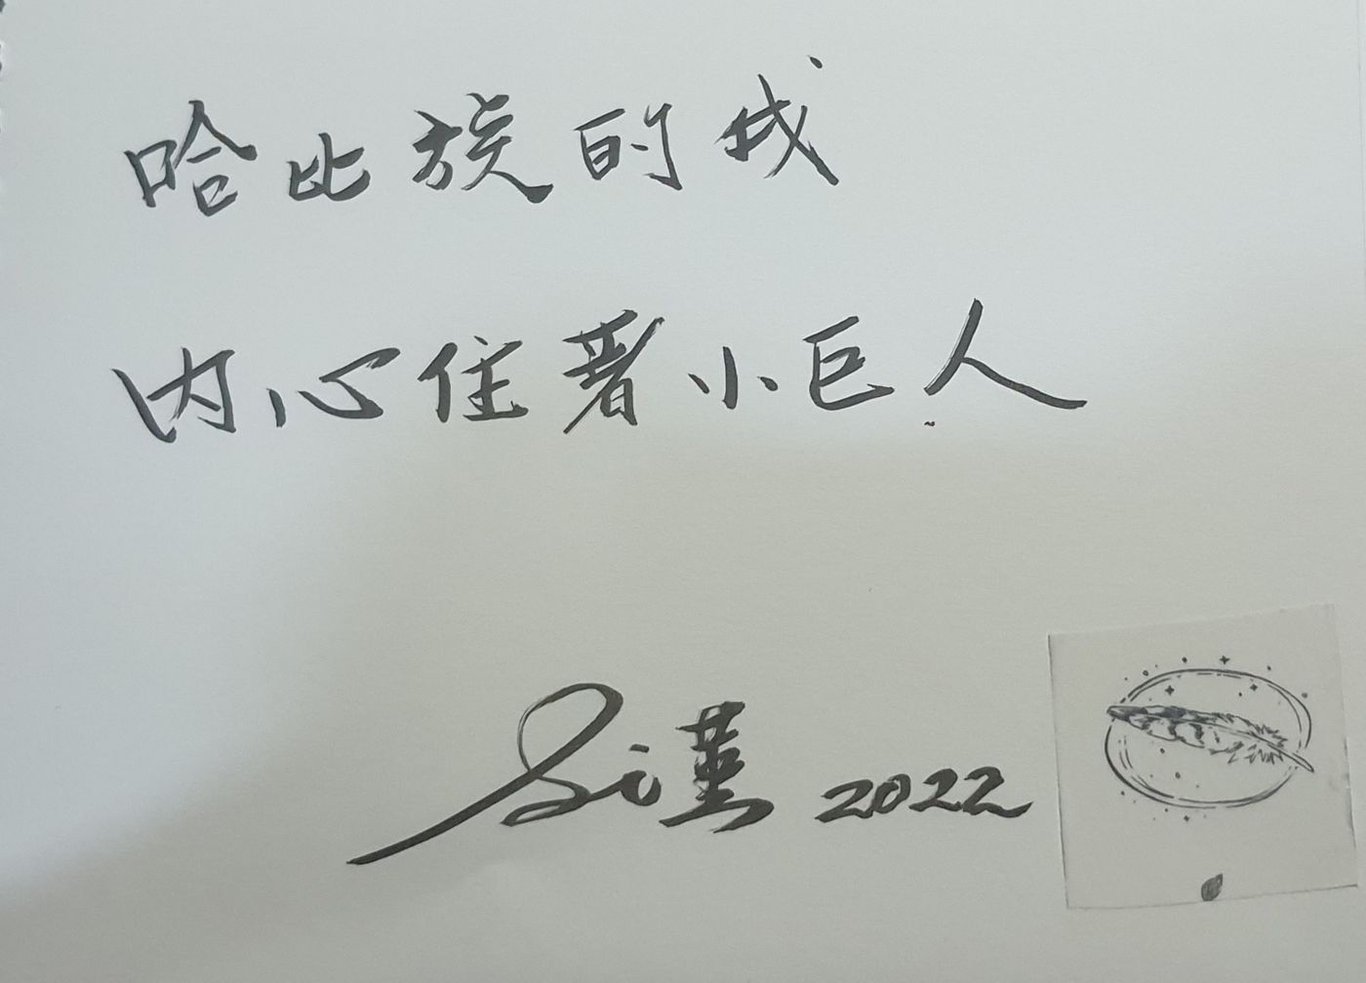 哈比族的我
內心住著小巨人
2022